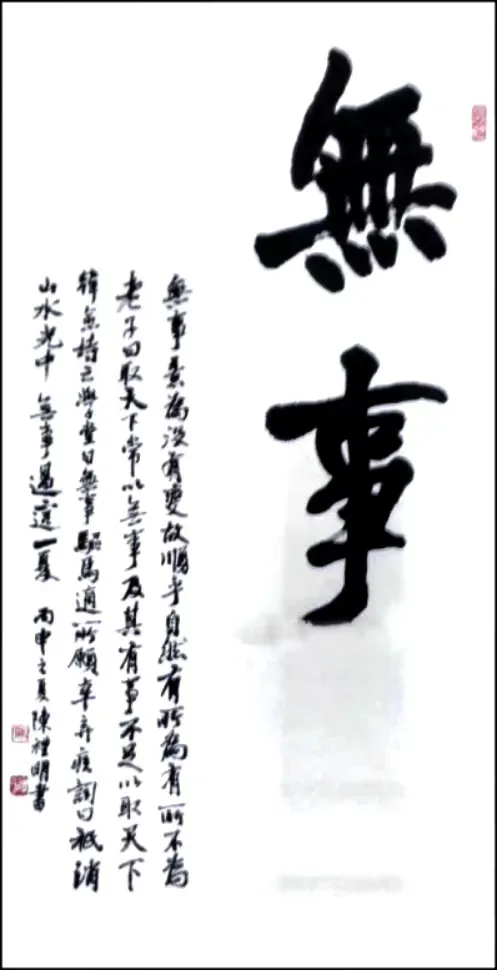 無事
無事意為沒有變故順乎自然有所為有所不為
老子曰取天下常以無事及其有事不足以取天下
韓愈詩云學堂日無事驅馬適所願辛弃疾詞曰祇消
山水光中無事過這一夏 丙申之夏陳禮明書